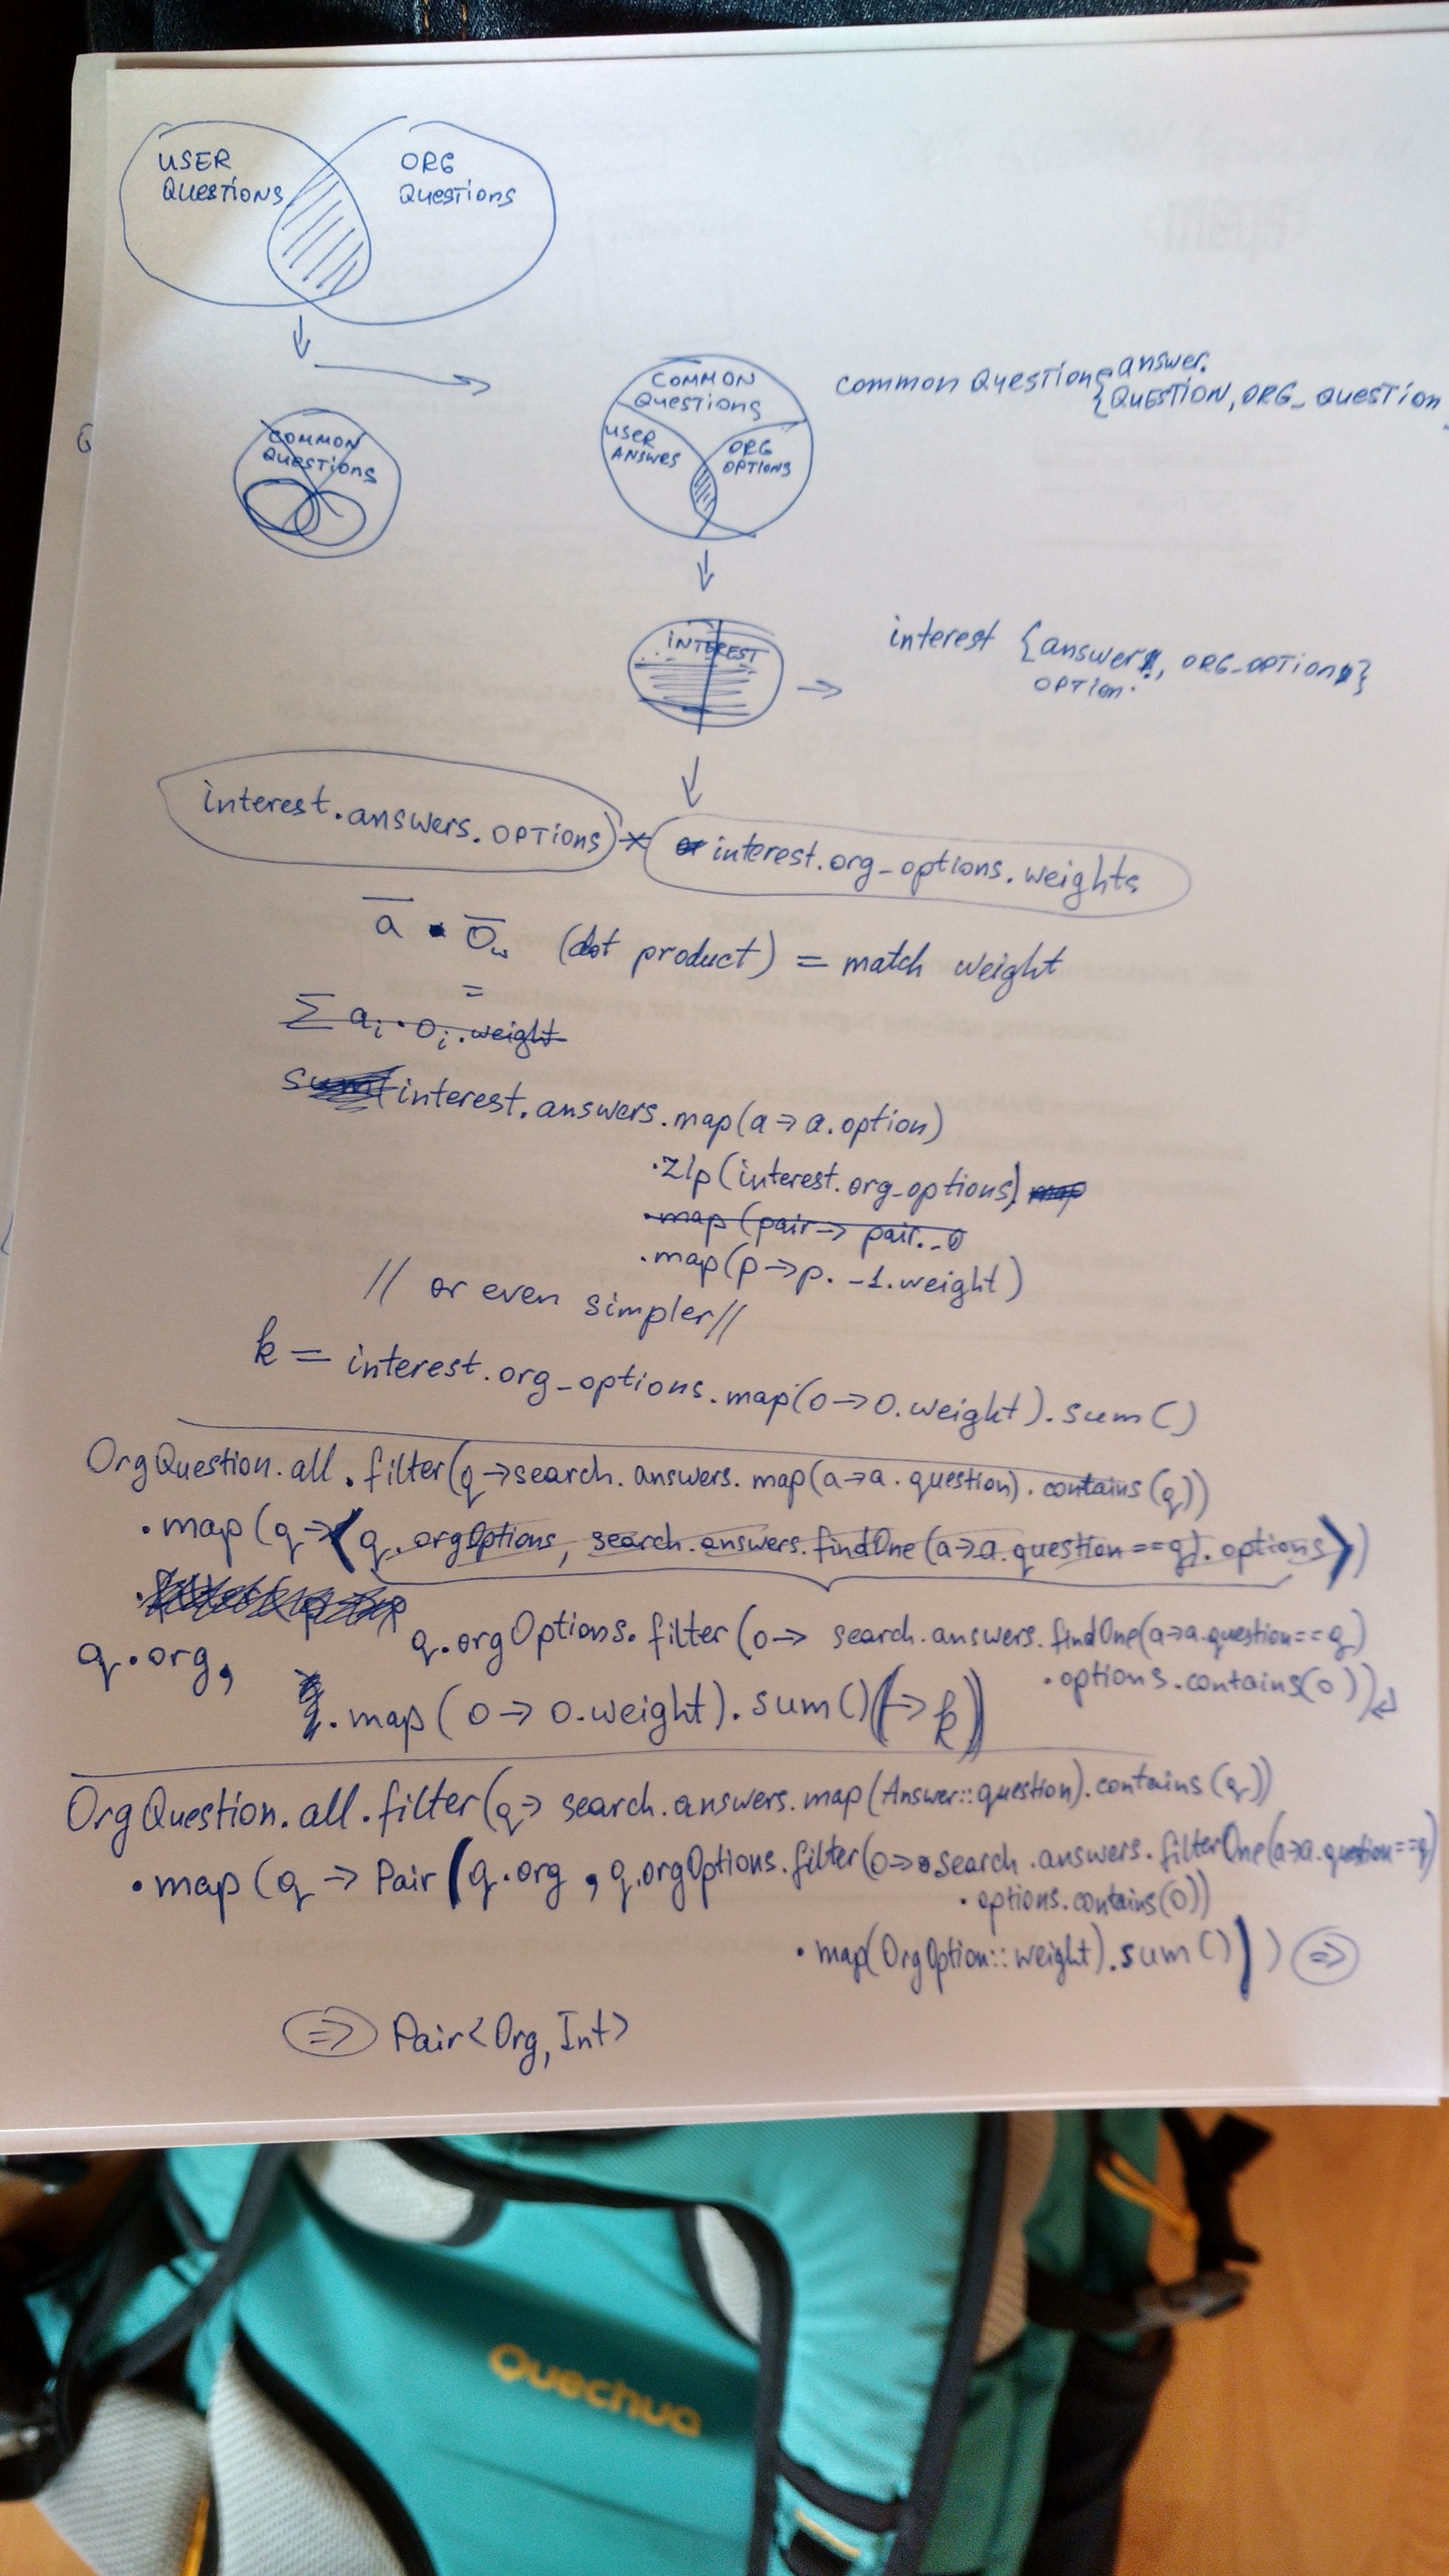 USER
QUESTIONS
ORG
QUESTIONS
COMMON
QUESTIONS
COMMON
QUESTIONS
USER
ANSWES
ORG
OPTIONS
common Question answer.
{QUESTION, ORG_QUESTION
INTEREST
interest {answer, ORG_OPTION}
OPTION.
interest.answers.OPTIONS * interest.org_options.weights
a • o w (dot product) = match weight
=
Σ ai · oi.weight
sum(interest.answers.map(a→a.option)
.zip(interest.org_options) map
.map(pair→ pair._0
.map(p→p._1.weight)
// or even simpler//
k = interest.org_options.map(o→o.weight).sum()
OrgQuestion.all.filter(q→search.answers.map(a→a.question).contains(q))
.map(q→(q.orgOptions, search.answers.findOne(a→a.question==q).options))
q.org, q.orgOptions.filter(o→ search.answers.findOne(a→a.question==q)
.options.contains(o))
.map(o→o.weight).sum()(→k)
OrgQuestion.all.filter(q→ search.answers.map(Answer::question).contains(q))
.map(q→Pair(q.org, q.orgOptions.filter(o→search.answers.filterOne(a→a.question==q)
.options.contains(o))
.map(OrgOption::weight).sum())) ⇒
⇒ Pair<Org, Int>
Quechua